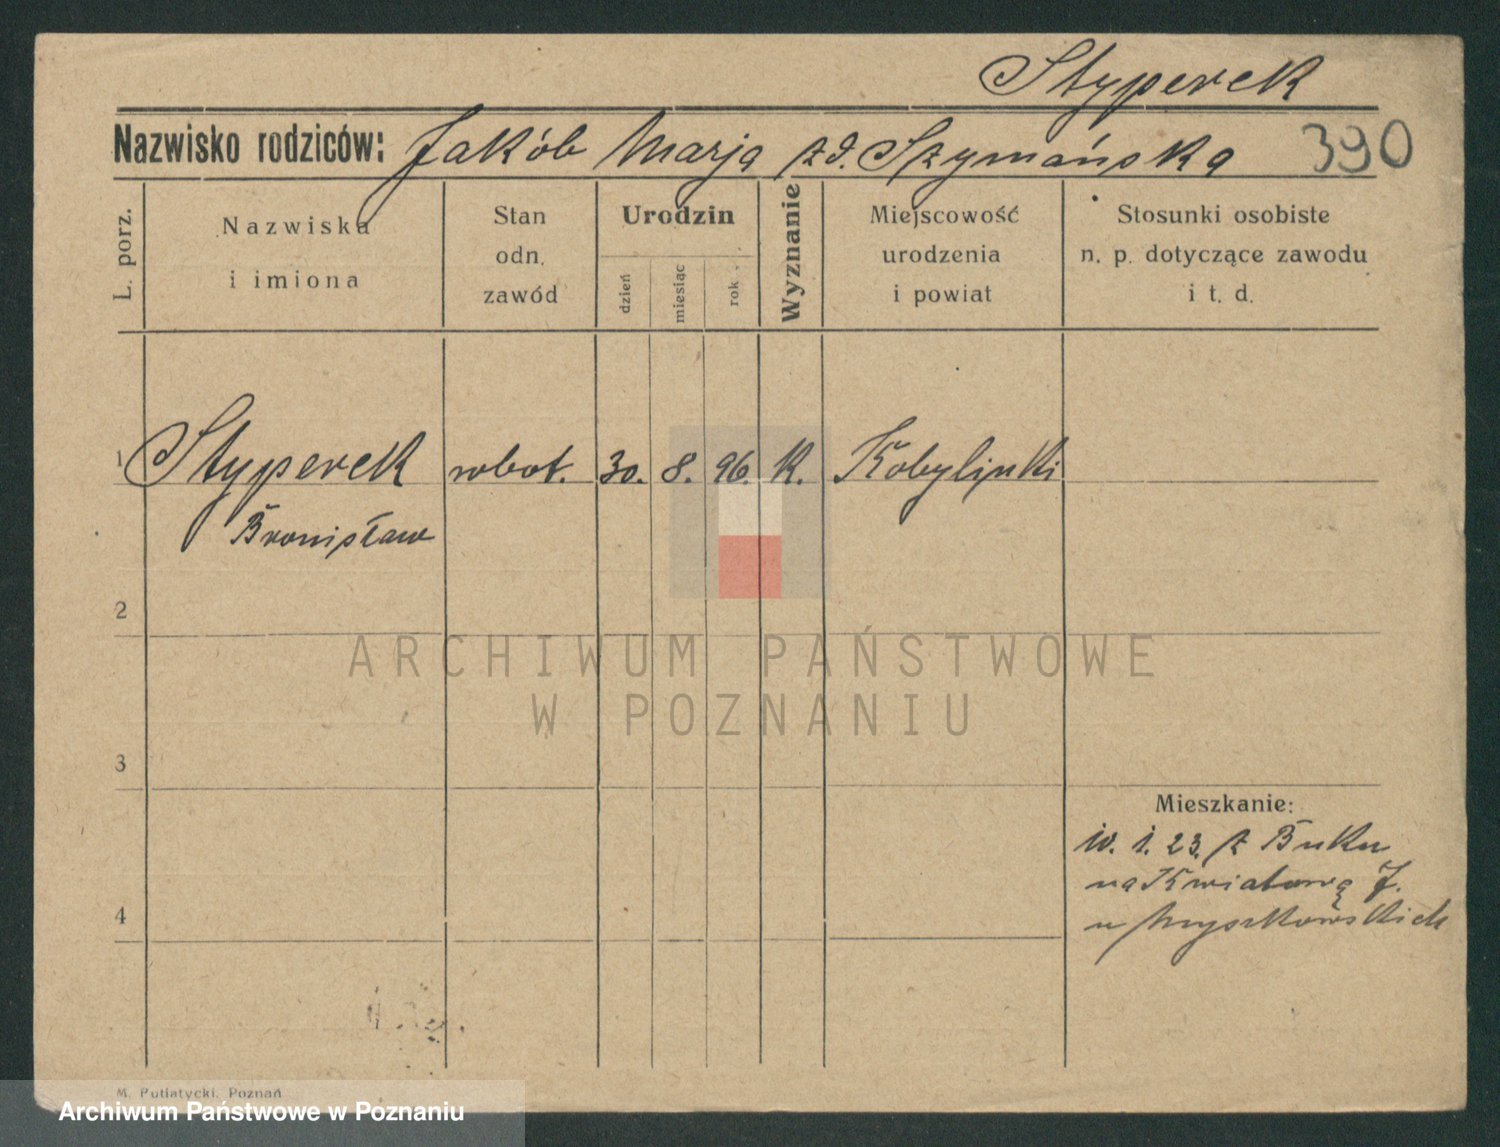 Styperek
Nazwisko rodziców: Jakób Marja zd. Szymańska 390
L. porz.
Nazwiska
i imiona
Stan
odn.
zawód
Urodzin
dzień
miesiąc
rok
Wyznanie
Miejscowość
urodzenia
i powiat
Stosunki osobiste
n. p. dotyczące zawodu
i t. d.
1 Styperek robot. 30. 8. 96. K.
Bronisław
2
ARCHIWUM PAŃSTWOWE
W POZNANIU
3
Mieszkanie:
10. 1. 23. z Buku
na Kwiatową 7.
u Myszkowskich
4
M. Putiatycki, Poznań
Archiwum Państwowe w Poznaniu